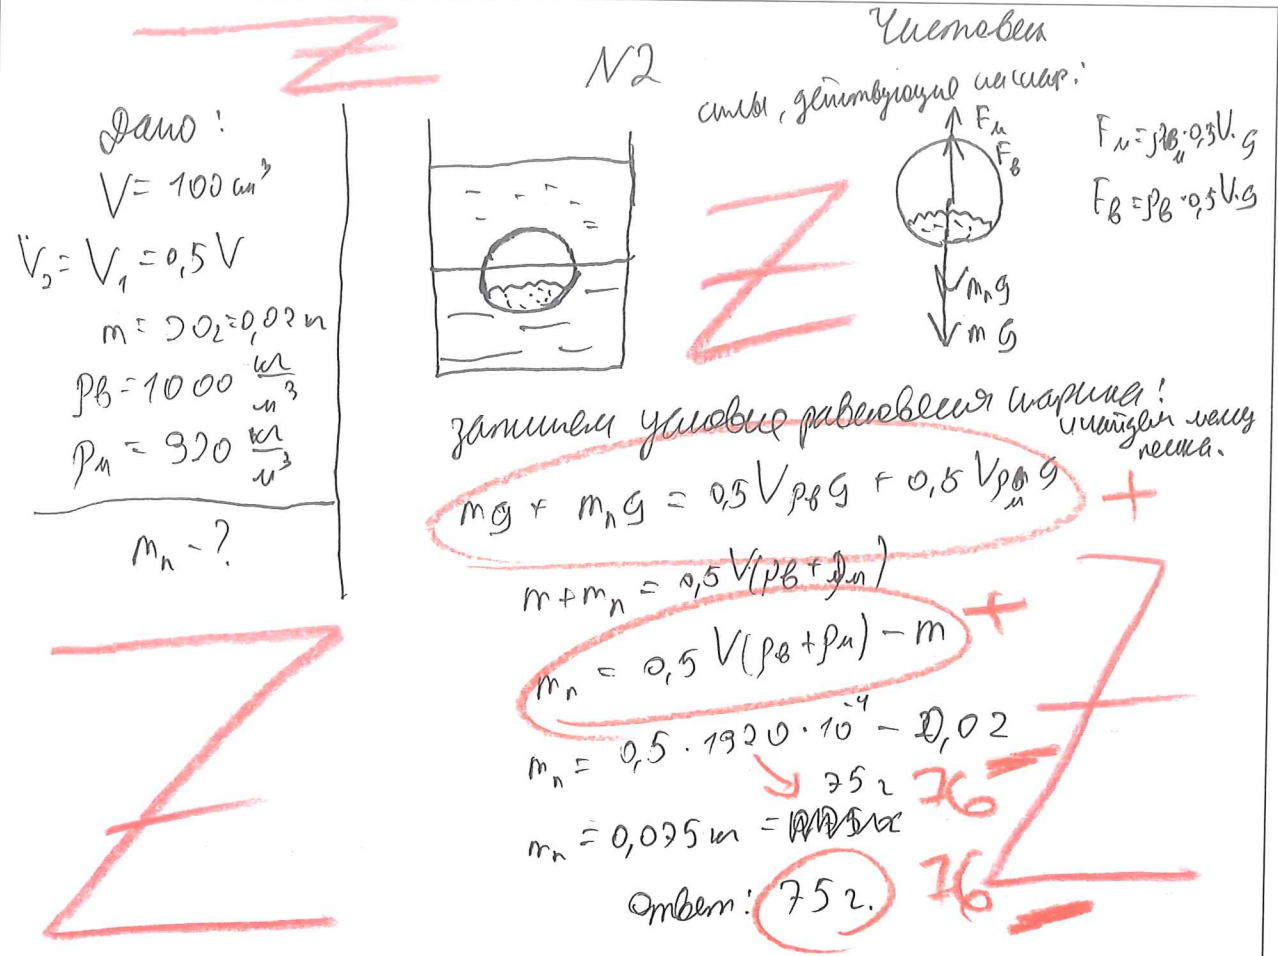 Чистовик
N2
Дано:
V = 100 см³
V₂ = V₁ = 0,5 V
m = 20г = 0,02 кг
ρв = 1000 кг/м³
ρм = 920 кг/м³
mп - ?
силы, действующие на шар:
Fм
Fв
mпg
mg
Fм = ρм·0,5V·g
Fв = ρв·0,5V·g
запишем условие равновесия шарика!
и найдем массу
песка.
mg + mпg = 0,5Vρвg + 0,5Vρмg +
m + mп = 0,5V(ρв + ρм)
mп = 0,5V(ρв + ρм) - m +
mп = 0,5·1920·10⁻⁴ - 0,02 -
75г 76
mп = 0,075 кг =
Ответ: 75г. 76 -